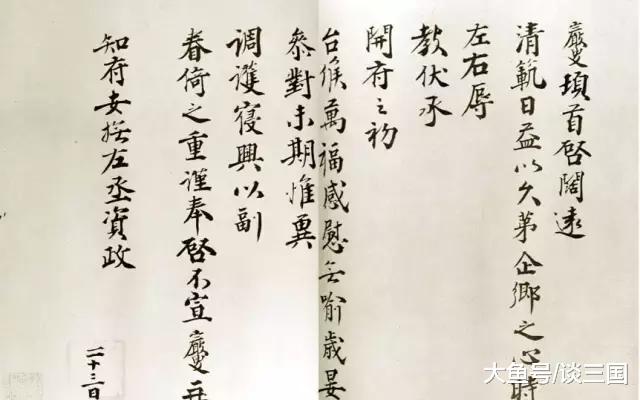 夔頓首啓闊遠
清範日益以久第企鄉之心時
左右辱
教伏承
開府之初
台候萬福感慰无喻歲晏
叅對未期惟冀
调護寝興以副
眷倚之重謹奉啓不宣夔再
知府安撫左丞資政
二十三日
大鱼号/谈三国